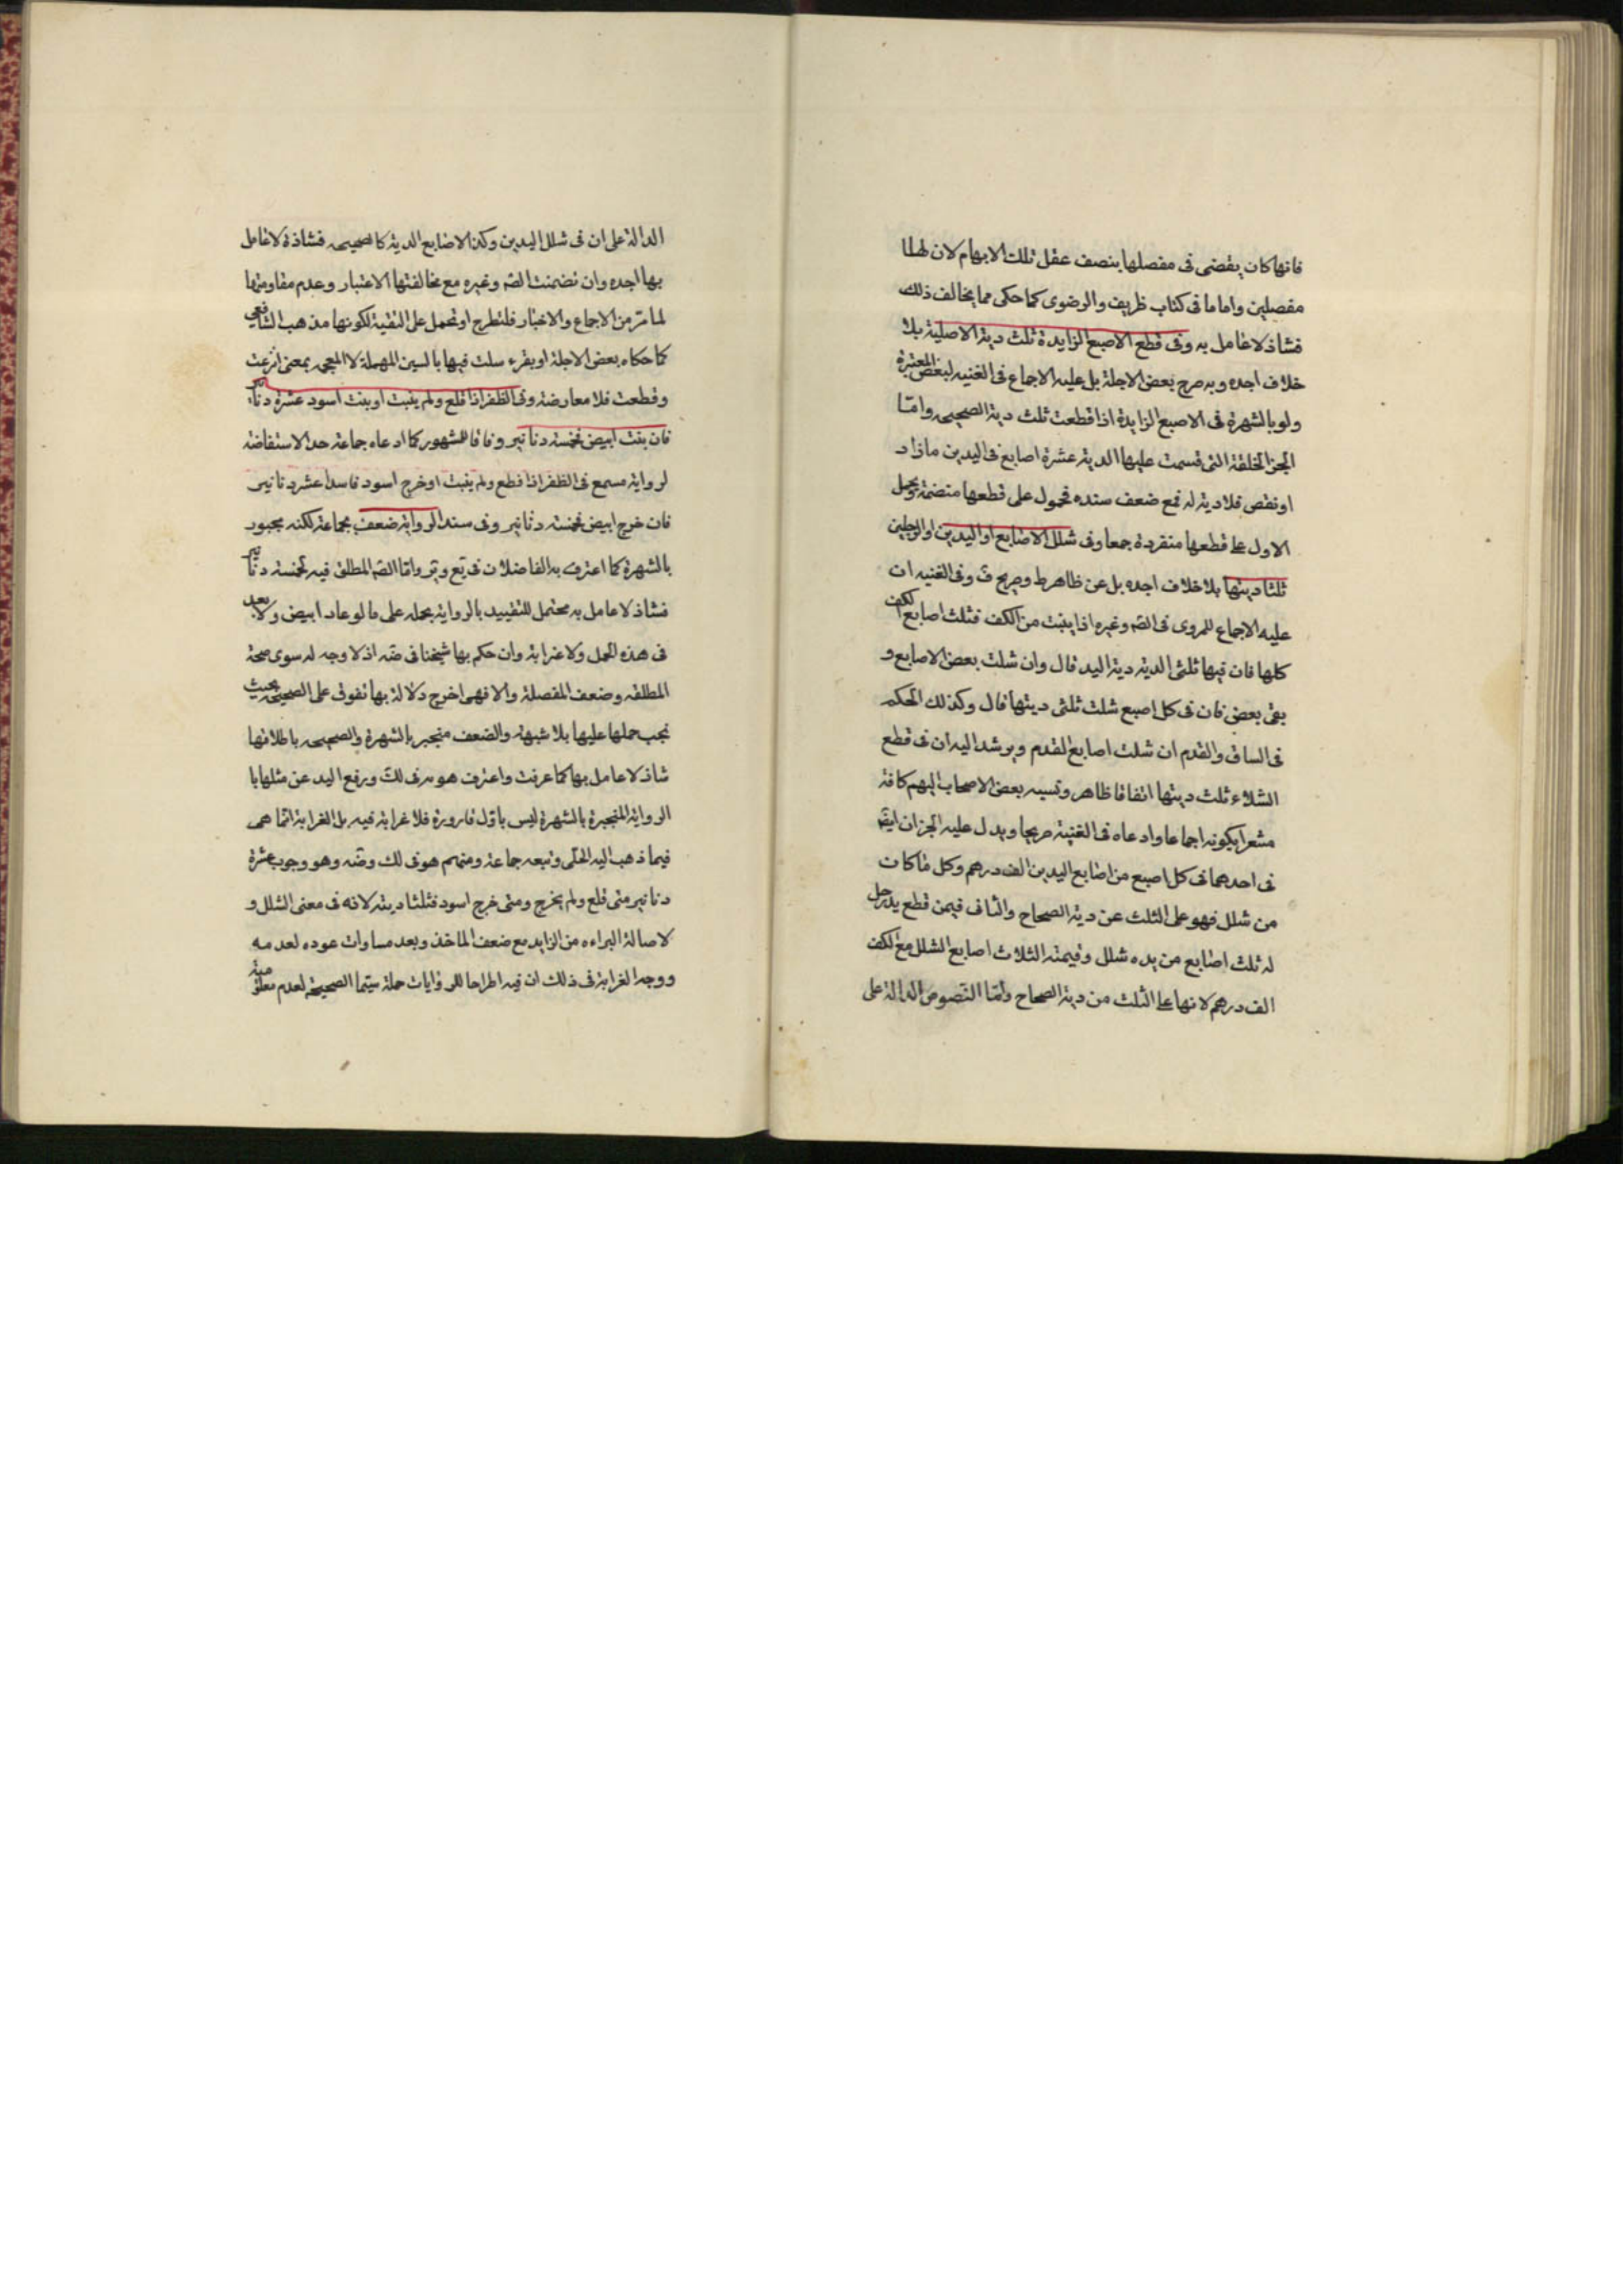 فانها كان يقضى فى مفصلها بنصف عقل تلك الابهام لان لها
مفصلين واما ما فى كتاب ظريف والرضوى كما حكى مما يخالف ذلك
فشاذ لا عامل به وفى قطع الاصبع الزايدة ثلث دية الاصلية بلا
خلاف اجده وبه صرح بعض الاجلة بل عليه الاجماع فى الغنيه لبعض المعتبرة
ولو بالشهرة فى الاصبع الزايدة اذا قطعت ثلث دية الصحيحه وامّا
الخبر الخلقة التى قسمت عليها الدية عشرة اصابع فى اليدين ما زاد
او نقص فلا دية له فمع ضعف سنده محمول على قطعها منضمة ويحمل
الاول على قطعها منفردة جمعا وفى شلل الاصابع او اليدين او الرجلين
ثلثا ديتها بلا خلاف اجده بل عن ظاهر ط وصريح ف وفى الغنيه ان
عليه الاجماع للمروى فى الصّ وغيره اذا يبست من الكف فشلت اصابع الكف
كلها فان فيها ثلثى الدية دية اليد قال وان شلت بعض الاصابع و
بقى بعض فان فى كل اصبع شلت ثلثى ديتها قال وكذلك الحكم
فى الساق والقدم ان شلت اصابع القدم ويرشد اليه ان فى قطع
الشلاء ثلث ديتها اتفاقا ظاهر ونسبه بعض الاصحاب اليهم كافة
مشعرا بكونه اجماعا وادعاه فى الغنية صريحا ويدل عليه الخبران ايضً
فى احدهما فى كل اصبع من اصابع اليدين الف درهم وكل ما كان
من شلل فهو على الثلث عن دية الصحاح والثانى فيمن قطع يد رجل
له ثلث اصابع من يده شلل وقيمته الثلاث اصابع الشلل مع الكف
الف درهم لانها على الثلث من دية الصحاح وامّا النّصوص الدالة على
الدالة على ان فى شلل اليدين وكذا الاصابع الدية كالصحيحه فشاذة لا عامل
بها اجده وان تضمنت الصّ وغيره مع مخالفتها الاعتبار وعدم مقاومتها
لما مّر من الاجماع والاخبار فلتطرح او تحمل على التقية لكونها مذهب الشافعى
كما حكاه بعض الاجلة او يقرء سلت فيها بالسين المهملة لا المعجمه بمعنى انزعت
وقطعت فلا معارضة وفى الظفر اذا قلع ولم ينبت او بنت اسود عشرة دنانير
فان بنت ابيض فخمسة دنانير وفاقا للمشهور كما ادعاه جماعة حد الاستفاضة
لرواية مسمع فى الظفر اذا قطع ولم ينبت او خرج اسود فاسدا عشر دنانير
فان خرج ابيض فخمسة دنانير وفى سند الرواية ضعف بجماعة لكنه مجبور
بالشهرة كما اعترف به الفاضلان فى يع وير وامّا الصّ المطلق فيه لخمسة دنانير
فشاذ لا عامل به محتمل للتقييد بالرواية بحمله على ما لو عاد ابيض ولا بعد
فى هذه الحمل ولا غرابة وان حكم بها شيخنا فى ضه اذ لا وجه له سوى صحة
المطلقه وضعف المفصلة والا فهى اخرج دلالة بها تفوق على الصحيحه بحيث
يجب حملها عليها بلا شبهة والضعف منجبر بالشهرة والصحيحه باطلاقها
شاذ لا عامل بها كما عرفت واعترف هو به فى لك ورفع اليد عن مثلها با
الرواية المنجبرة بالشهرة ليس باوّل قارورة فلا غرابة فيه بل الغرابة انّما هى
فيما ذهب اليه الحلّى وتبعه جماعة ومنهم هو فى لك وضه وهو وجوب عشرة
دنانير متى قلع ولم يخرج ومتى خرج اسود فثلثا ديته لانه فى معنى الشلل و
لاصالة البراءه من الزايد مع ضعف الماخذ وبعد مساوات عوده لعدمه
ووجه الغرابة فى ذلك ان فيه اطراحا للروايات جملة سيّما الصحيحة لعدم